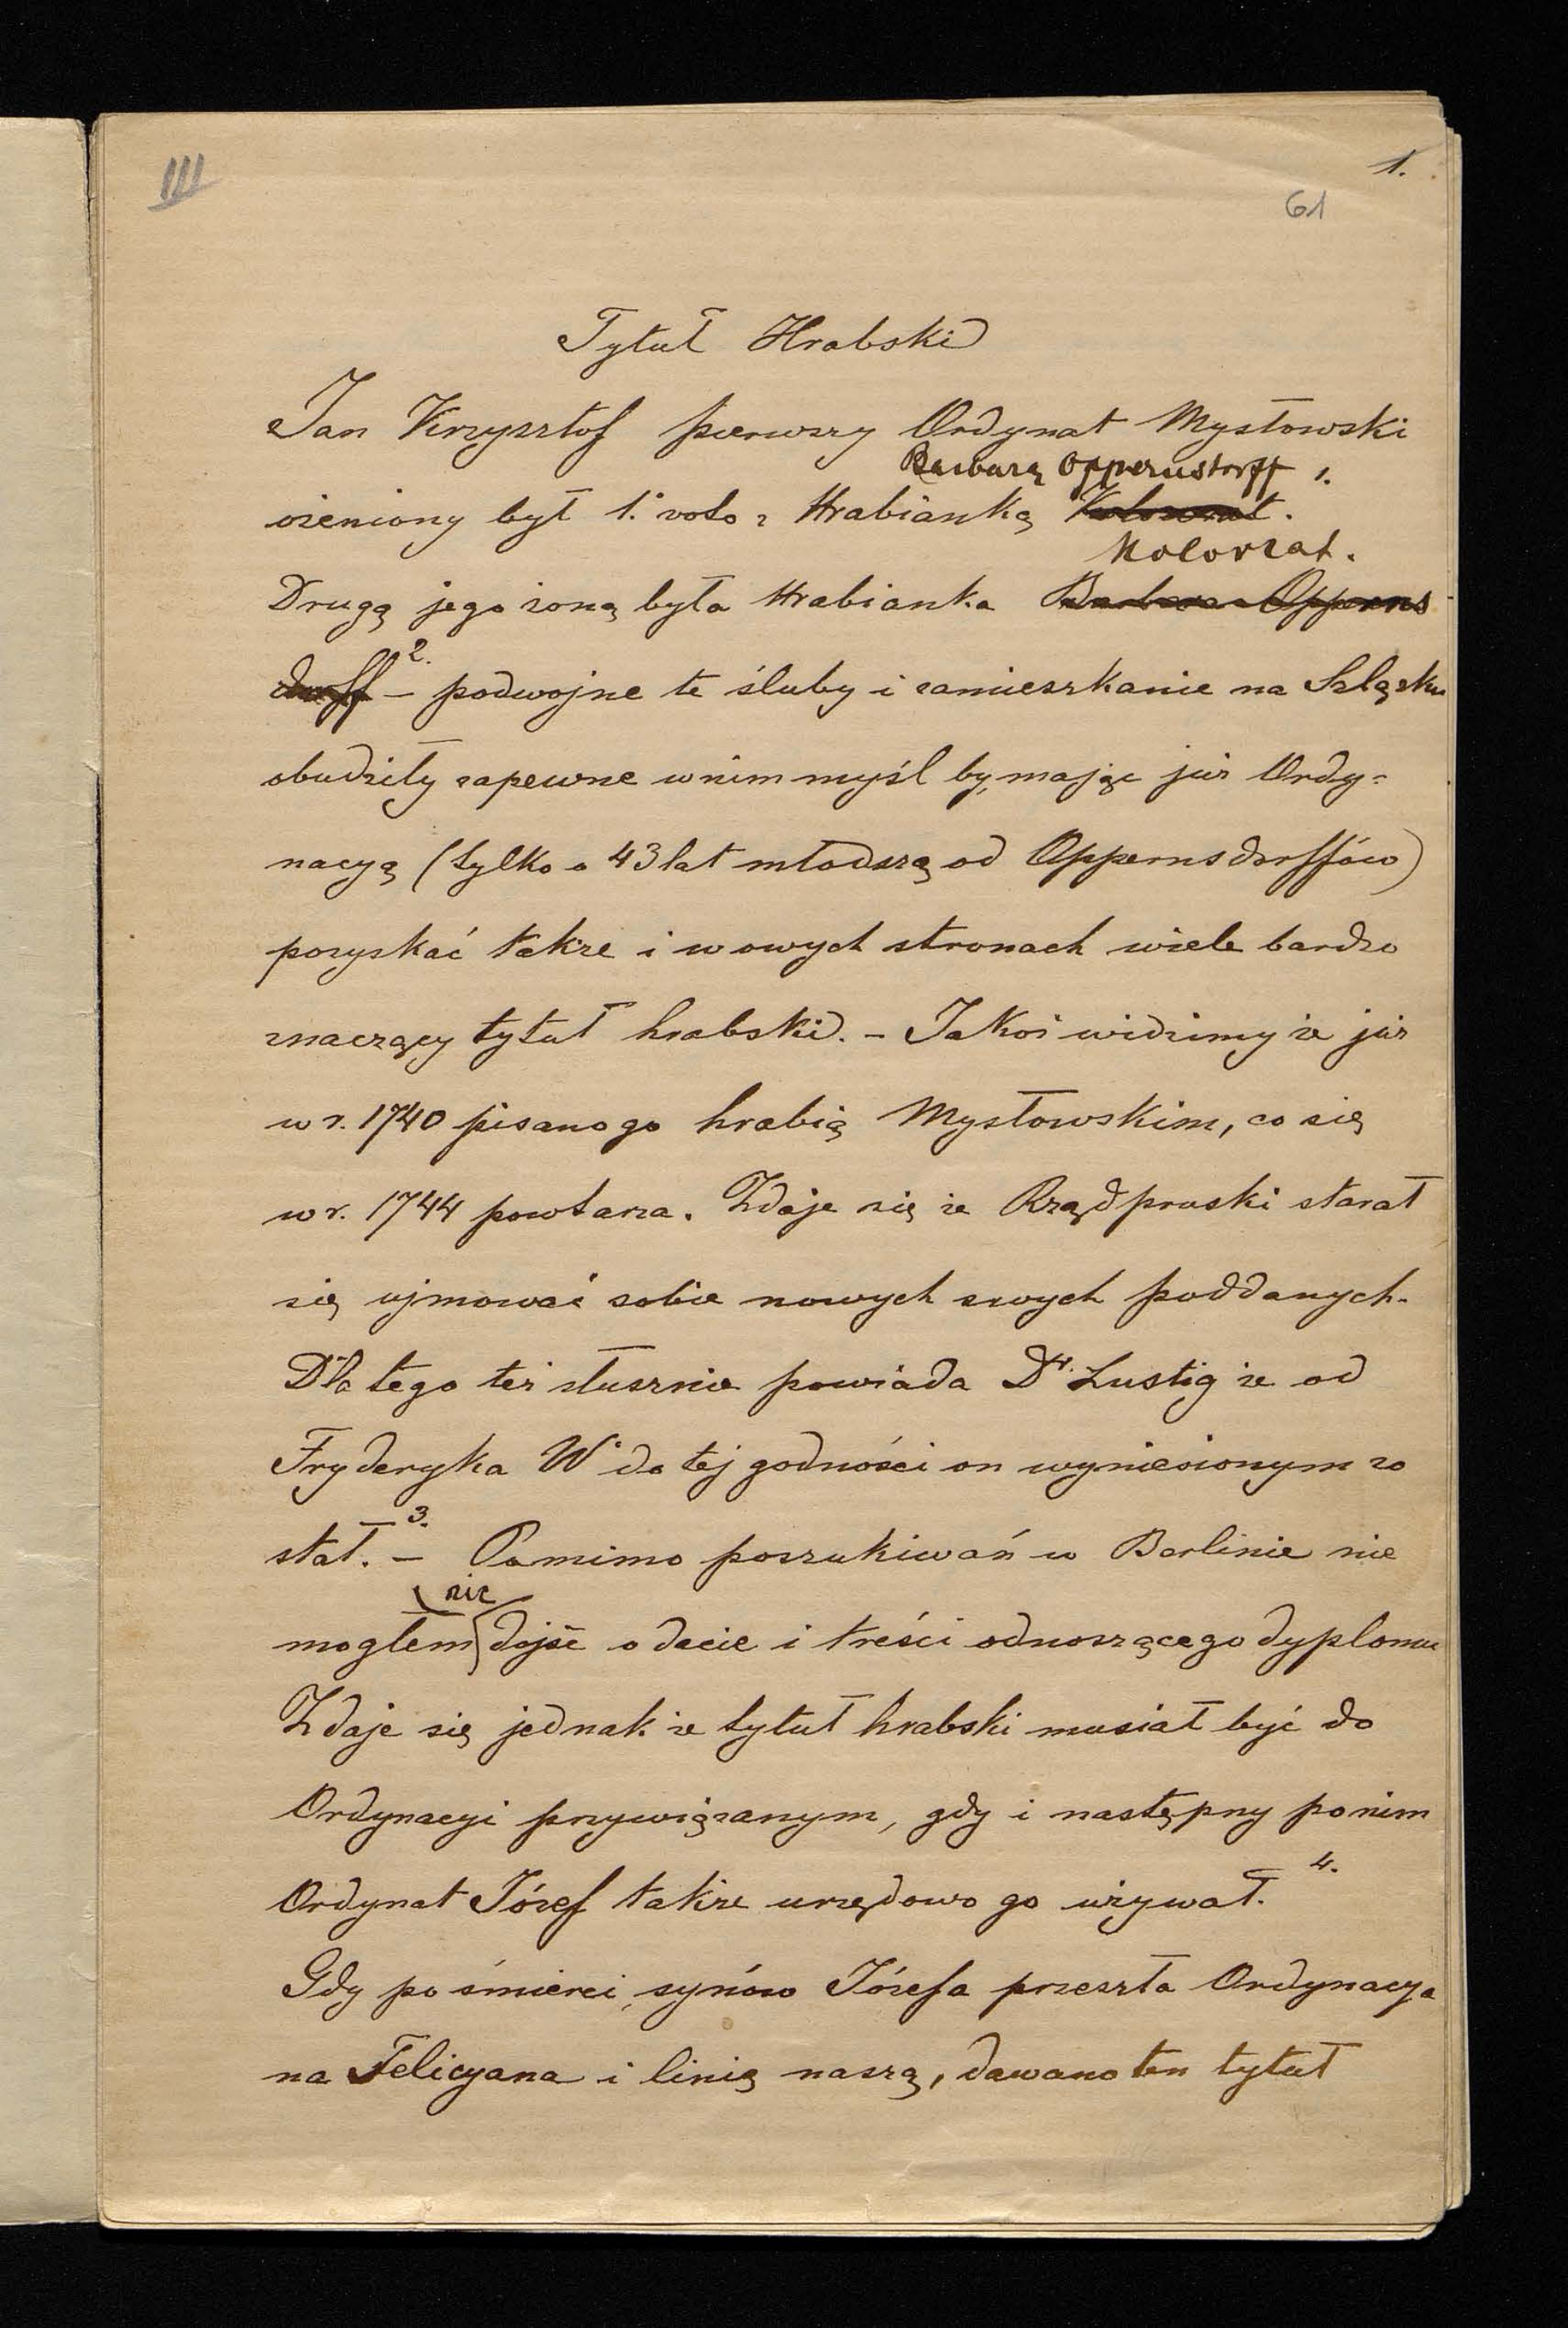 III
1.
61
Tytuł Hrabski
Jan Krzysztof pierwszy Ordynat Mysłowski
Barbarą Oppernstorff 1.
ożeniony był 1.° voto z Hrabianką Kolowrat.
Kolovrat.
Drugą jego żoną była Hrabianka Barbara Opperns
dorff 2. – podwojne te śluby i zamieszkanie na Szląsku
obudziły zapewne w nim myśl by, mając już Ordy-
nacyą (tylko o 43 lat młodszą od Oppernsdorffów)
pozyskać także i w owych stronach wiele bardzo
znaczący tytuł hrabski. – Jakoż widzimy że już
w r. 1740 pisano go hrabią Mysłowskim, co się
w r. 1744 powtarza. Zdaje się że Rząd pruski starał
się ujmować sobie nowych swych poddanych.
Dla tego też słusznie powiada Dr. Lustig że od
Fryderyka W° do tej godności on wyniesionym zo
stał. 3. – Pomimo poszukiwań w Berlinie nie
nic
mogłem dojść o dacie i treści odnoszącego dyplomu
Zdaje się jednak że tytuł hrabski musiał być do
Ordynacyi przywiązanym, gdy i następny po nim
Ordynat Józef także urzędowo go używał. 4.
Gdy po śmierci synów Józefa przeszła Ordynacya
na Felicyana i linią naszą, dawano ten tytuł